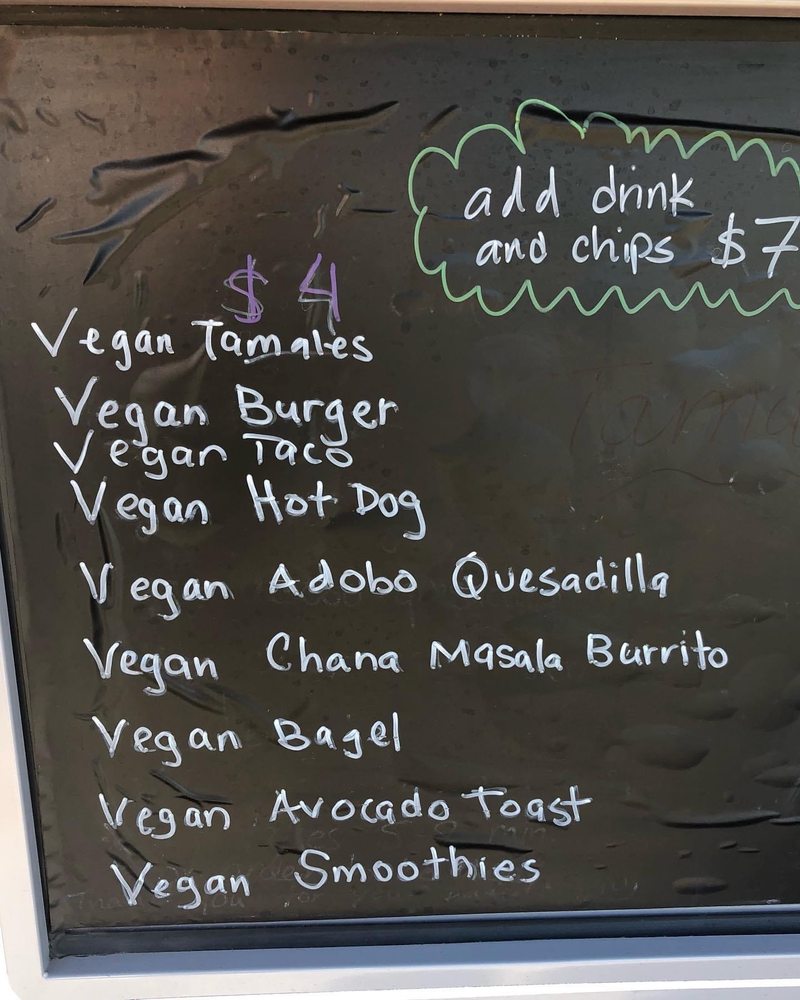 add drink
and chips $7
$4
Vegan Tamales
Vegan Burger
Vegan Taco
Vegan Hot Dog
Vegan Adobo Quesadilla
Vegan Chana Masala Burrito
Vegan Bagel
Vegan Avocado Toast
Vegan Smoothies